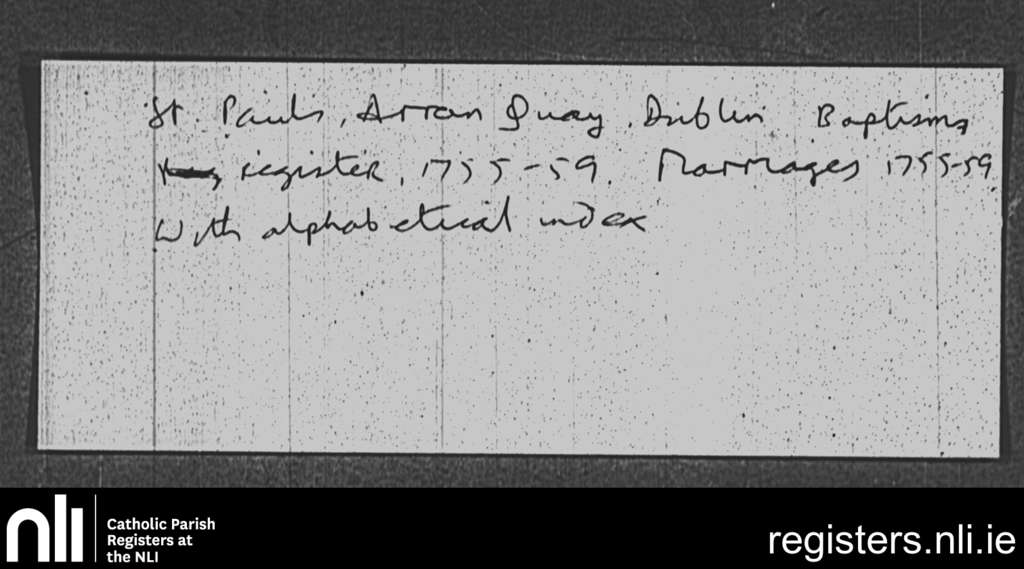 St. Pauls, Arran Quay, Dublin Baptisms
register, 1755-59. Marriages 1755-59
With alphabetical index
nli
Catholic Parish
Registers at
the NLI
registers.nli.ie